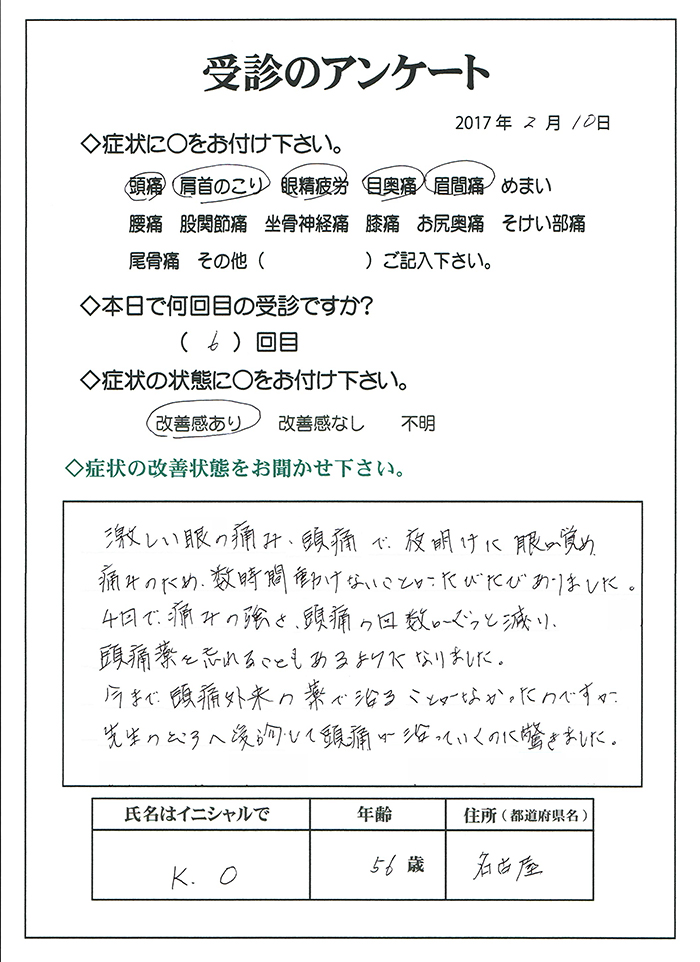 受診のアンケート
2017年 2月 10日
◇症状に○をお付け下さい。
頭痛 肩首のこり 眼精疲労 目奥痛 眉間痛 めまい
腰痛 股関節痛 坐骨神経痛 膝痛 お尻奥痛 そけい部痛
尾骨痛 その他（ ）ご記入下さい。
◇本日で何回目の受診ですか?
（ 6 ）回目
◇症状の状態に○をお付け下さい。
改善感あり 改善感なし 不明
◇症状の改善状態をお聞かせ下さい。
激しい眼の痛み、頭痛で、夜明けに眼が覚め
痛みのため、数時間動けないことが、たびたびありました。
4回で、痛みの強さ、頭痛の回数がぐっと減り、
頭痛薬を忘れることもあるようになりました。
今まで、頭痛外来の薬で治ることがなかったのですが、
先生のところへ受診して頭痛が治っていくのに驚きました。
氏名はイニシャルで 年齢 住所（都道府県名）
K. O 56歳 名古屋